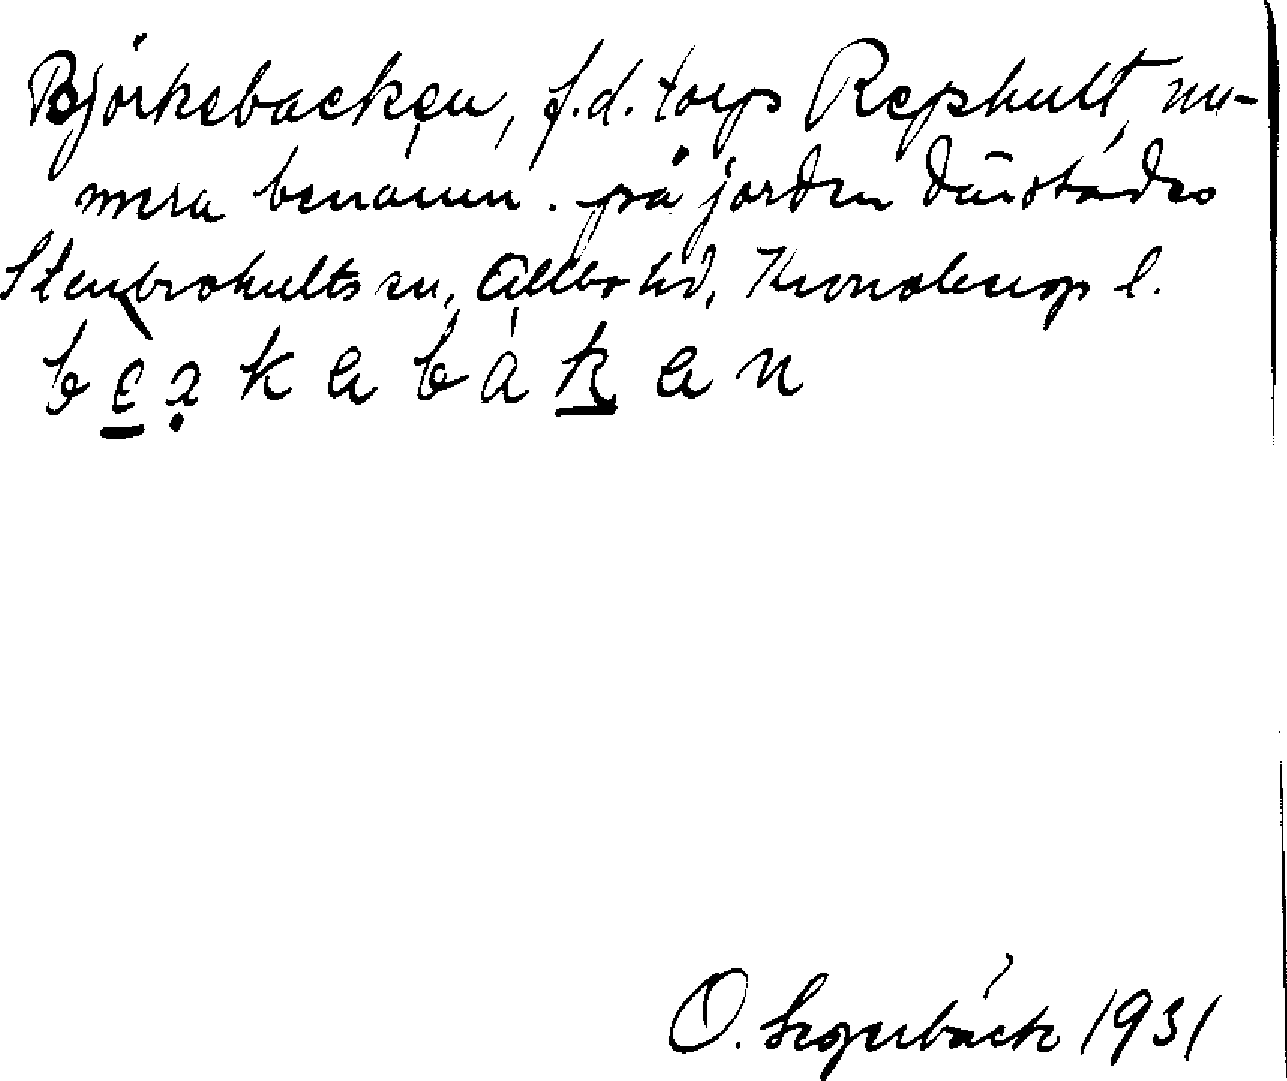 Björkebacken, f.d. torp Rephult, nu-
mera benämn. på jorden därstädes
Stenbrohults sn, Allbo hd, Kronobergs l.
O. Segerbäck 1931